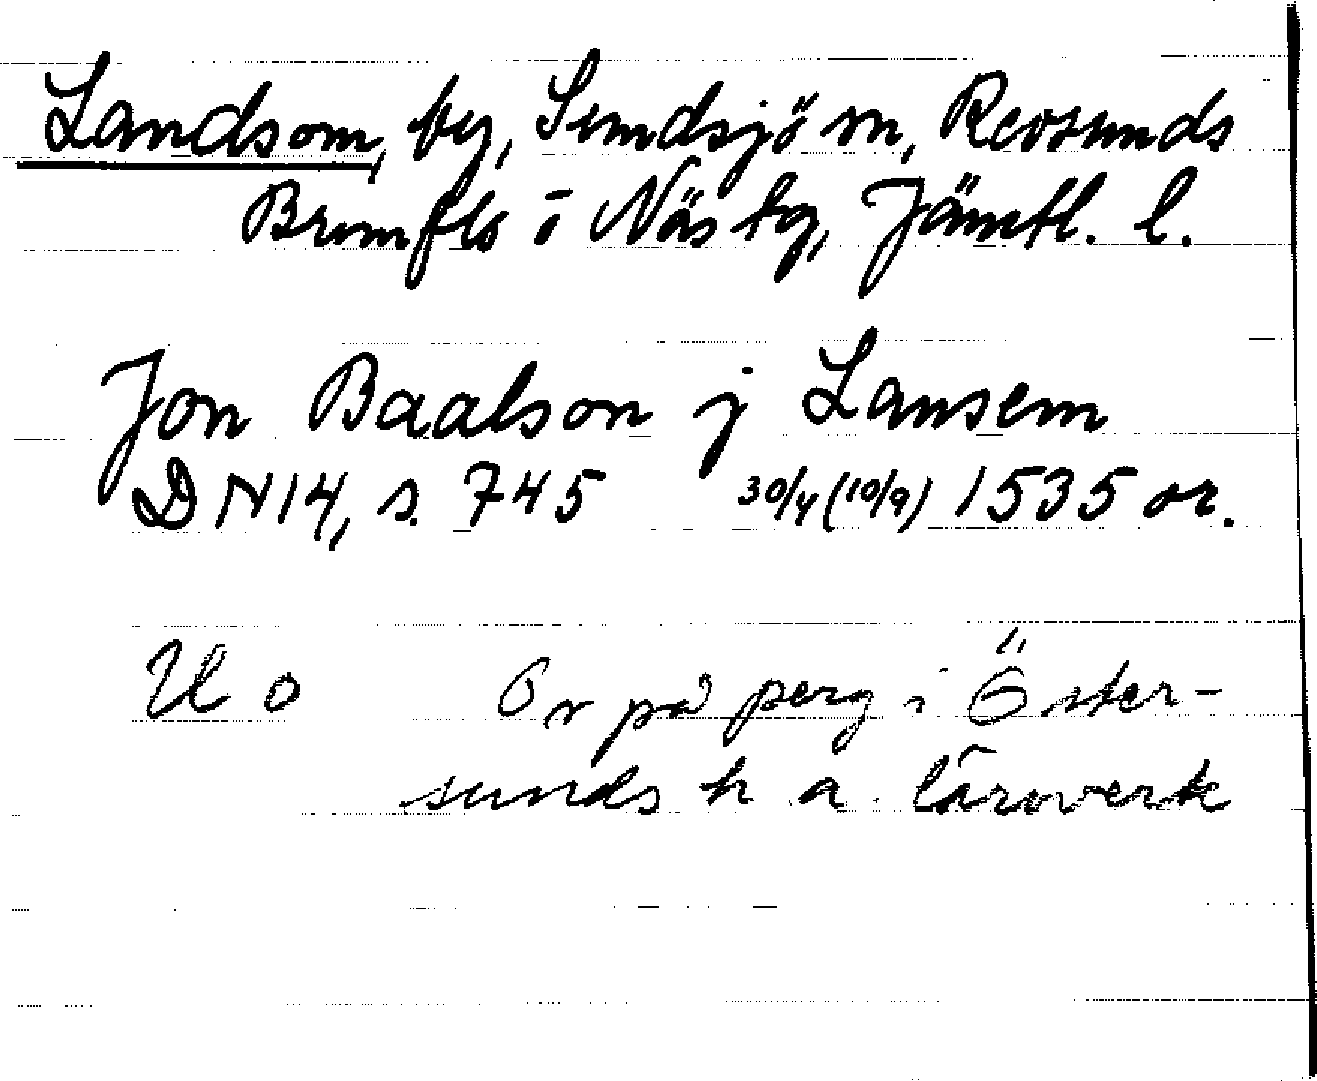 Landsom, by, Sundsjö sn, Revsunds
Brunflo o Näs tg, Jämtl. l.
Jon Baalson j Lansem
DN14, s. 745 30/4 (10/9) 1535 or.
Uo Or på perg i Öster-
sunds h a. läroverk